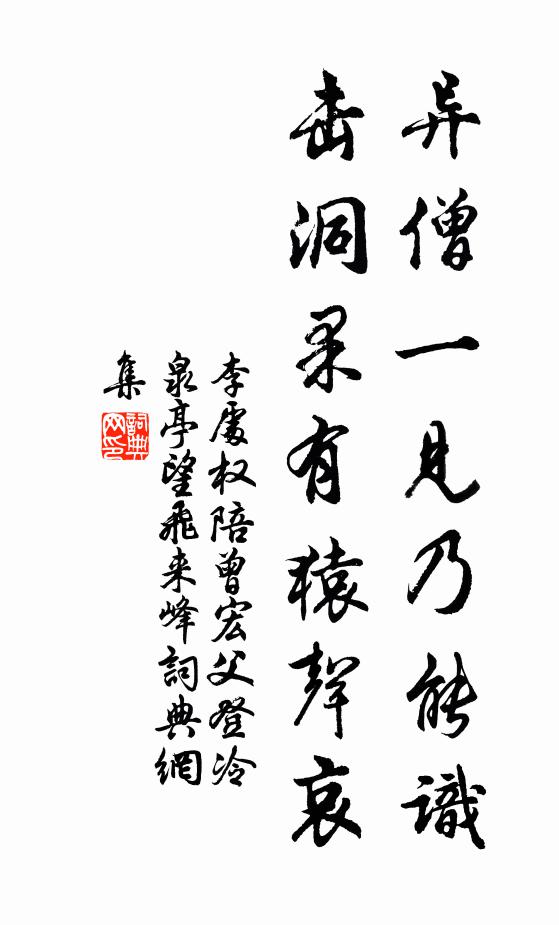 异僧一見乃能識
击洞果有猿聲哀
李處权陪曾宏父登冷
泉亭望飛来峰詞典網
集
詞典
网印